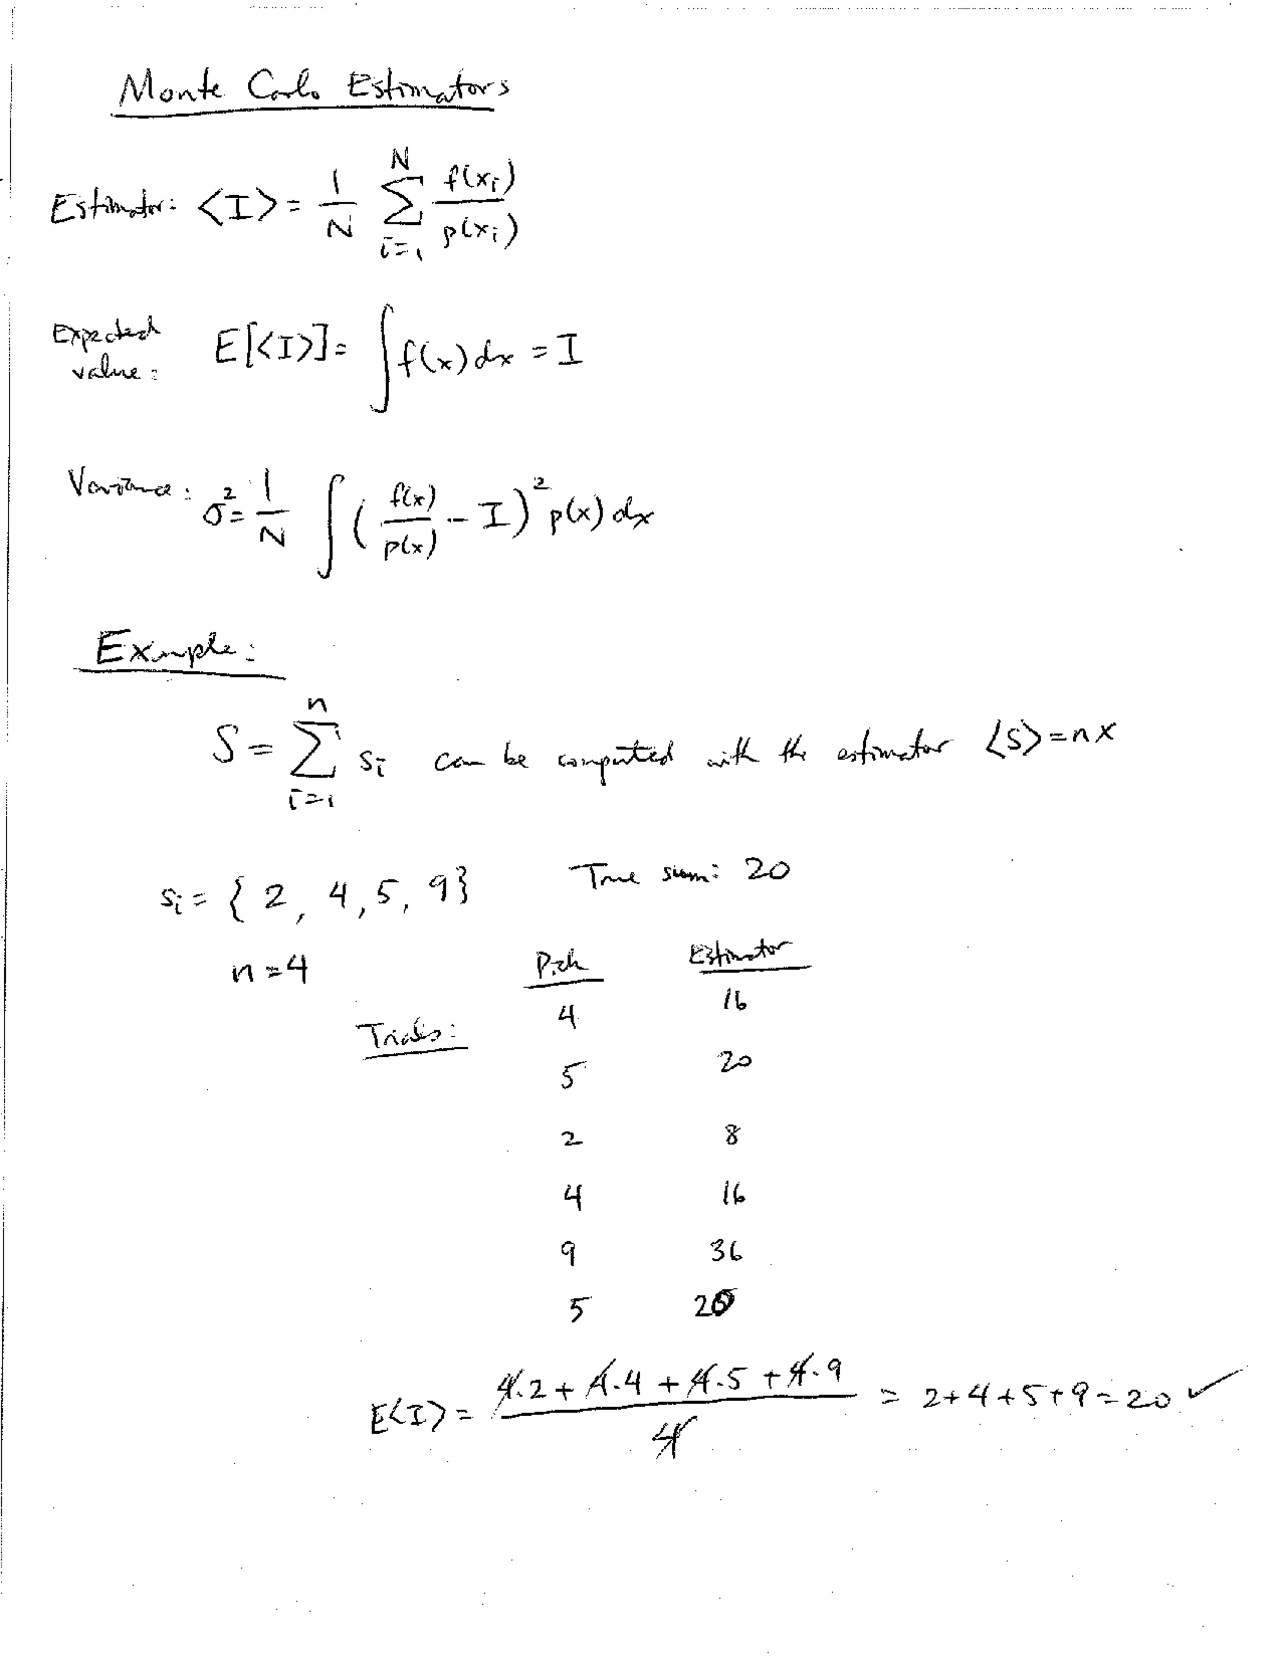 Monte Carlo Estimators
Estimator: <I> = 1/N Σ_{i=1}^{N} f(x_i)/p(x_i)
Expected value: E[<I>] = ∫ f(x) dx = I
Variance: σ² = 1/N ∫ (f(x)/p(x) - I)² p(x) dx
Example:
S = Σ_{i=1}^{n} s_i can be computed with the estimator <S> = n x
s_i = {2, 4, 5, 9} True sum: 20
n = 4
Pick Estimator
Trials: 4 16
5 20
2 8
4 16
9 36
5 20
E<I> = (4·2 + 4·4 + 4·5 + 4·9)/4 = 2+4+5+9 = 20 ✓